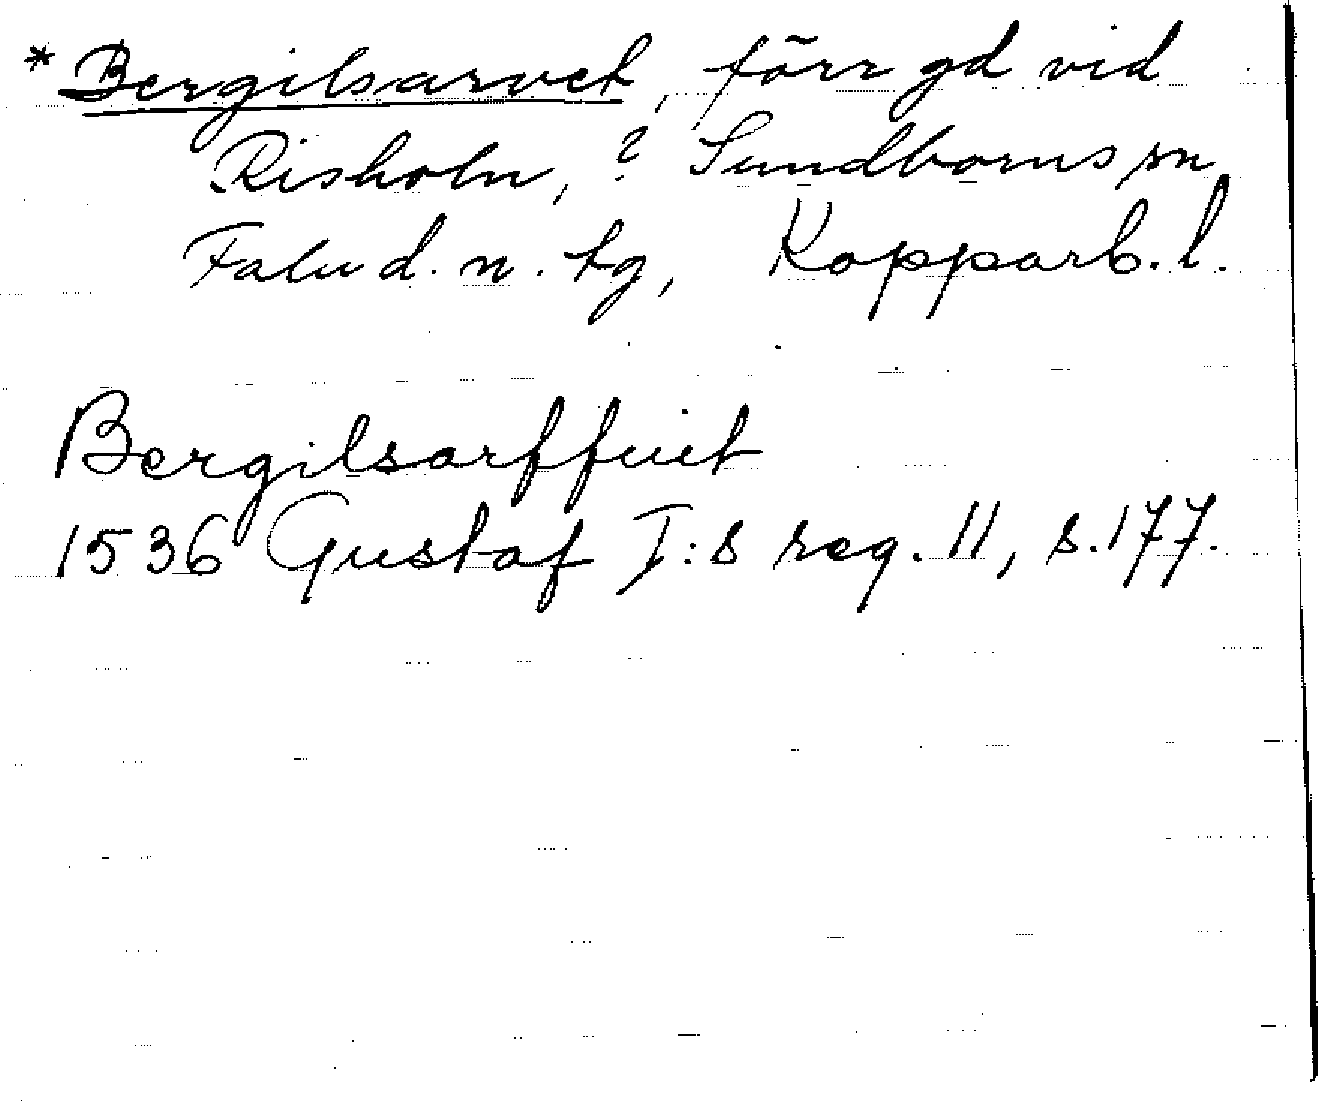 * Bergilsarvet, förr gd vid
Risholn, ? Sundborns sn
Falu d. n. tg, Kopparb. l.
Bergilsarffuet
1536 Gustaf I:s reg. 11, s. 177.